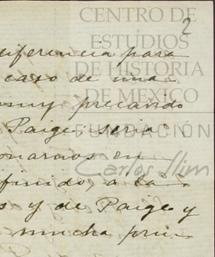 2
CENTRO DE
ESTUDIOS
DE HISTORIA
DE MEXICO
FUNDACIÓN
Carlos Slim
diferencia para
caso de una
muy precando
Paige, seria
onarnos en
finido a la
s y de Paige y
mucha pru-